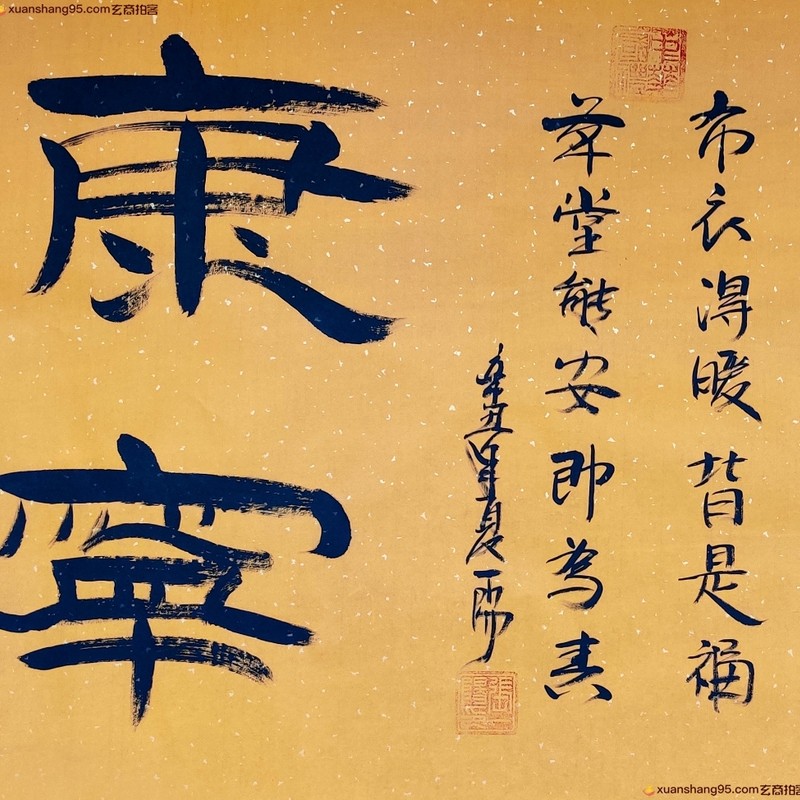 xuanshang95.com玄商拍客
布衣得暖皆是福
草堂能安即為春
辛丑年夏一陽
康寧
xuanshang95.com玄商拍客